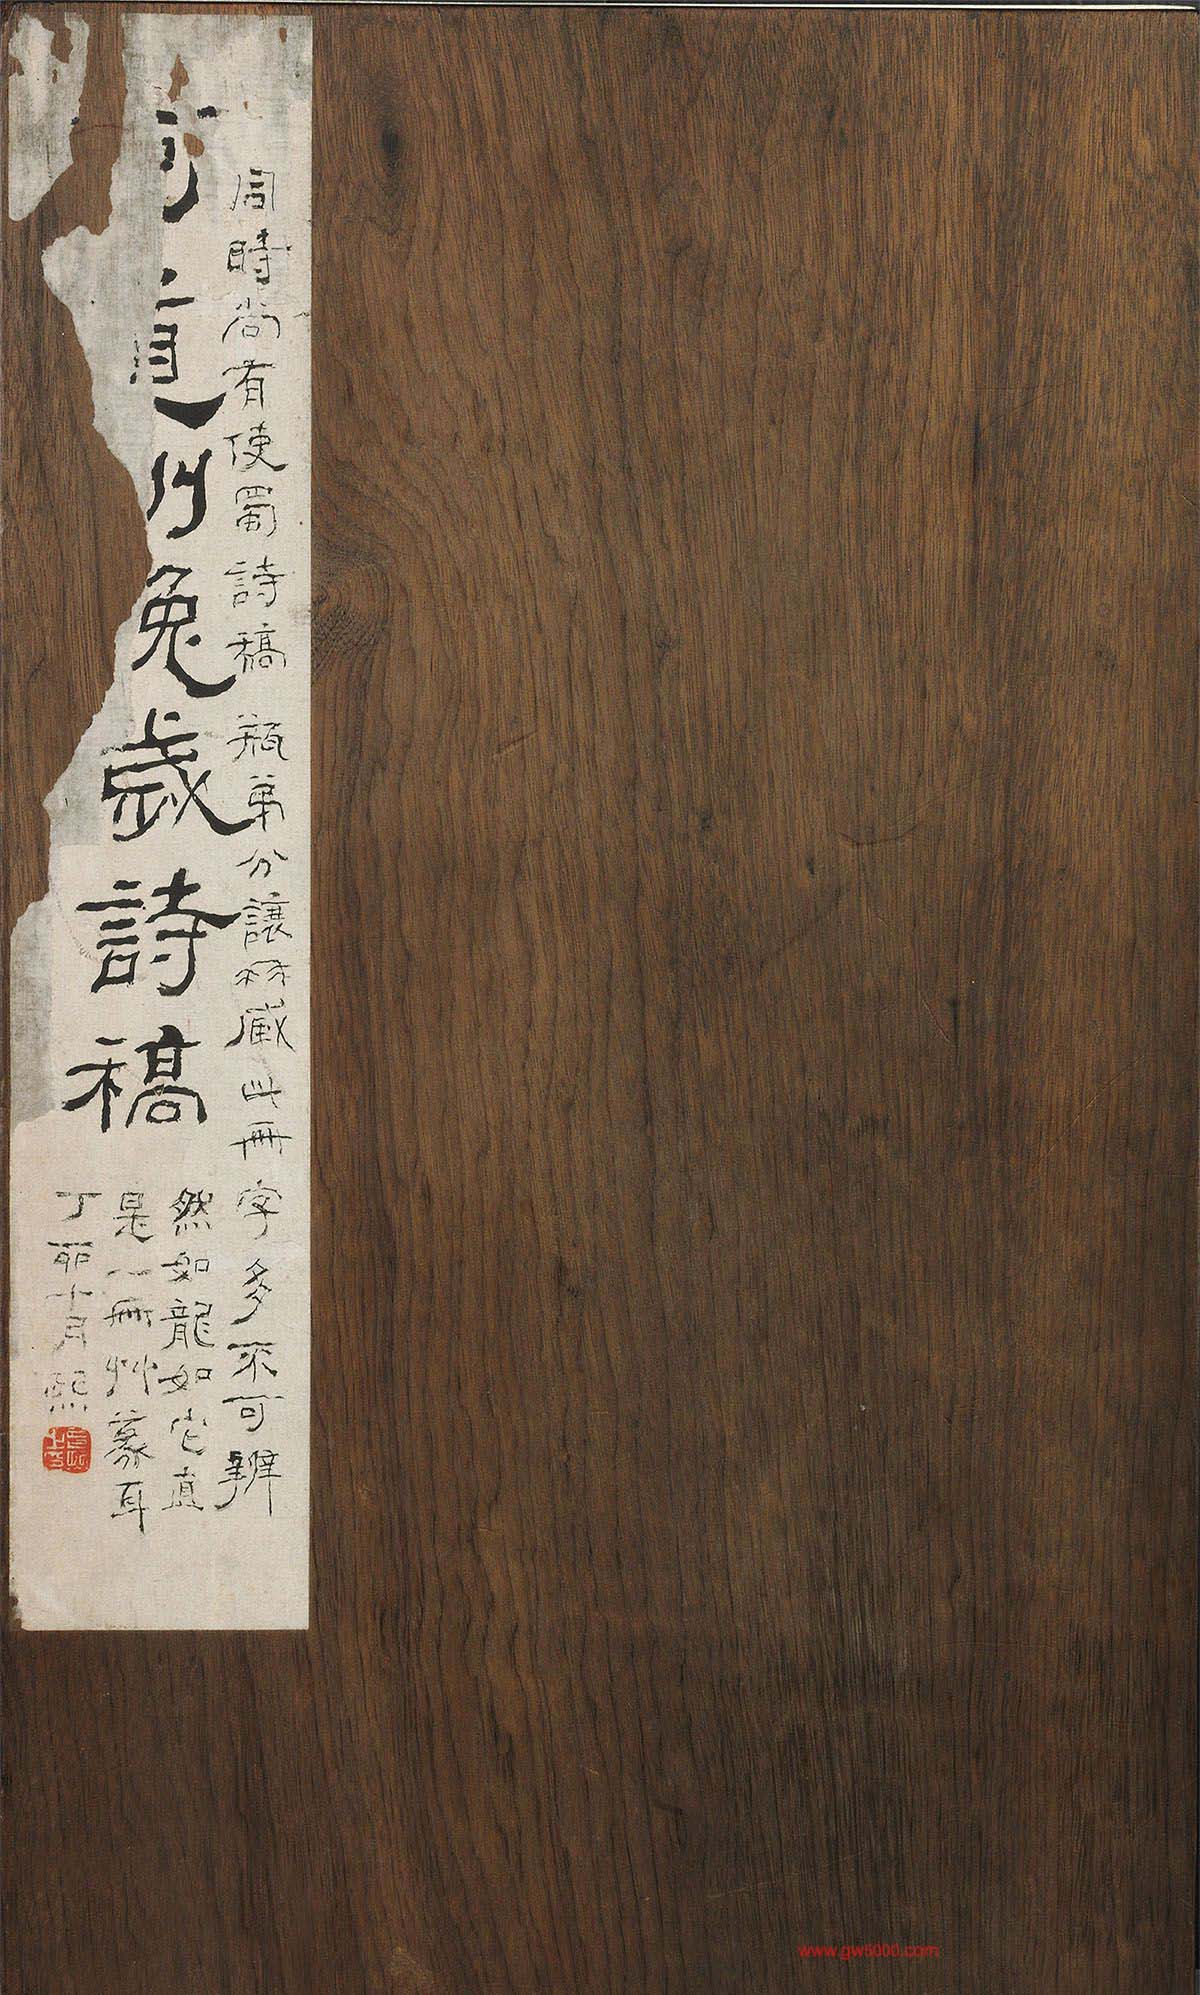 同時尚有使蜀詩稿瓶弟分讓所藏此冊字多不可辨
兔歲詩稿
然如龍如它直
是一冊艸篆耳
丁卯十月熙
www.gw5000.com